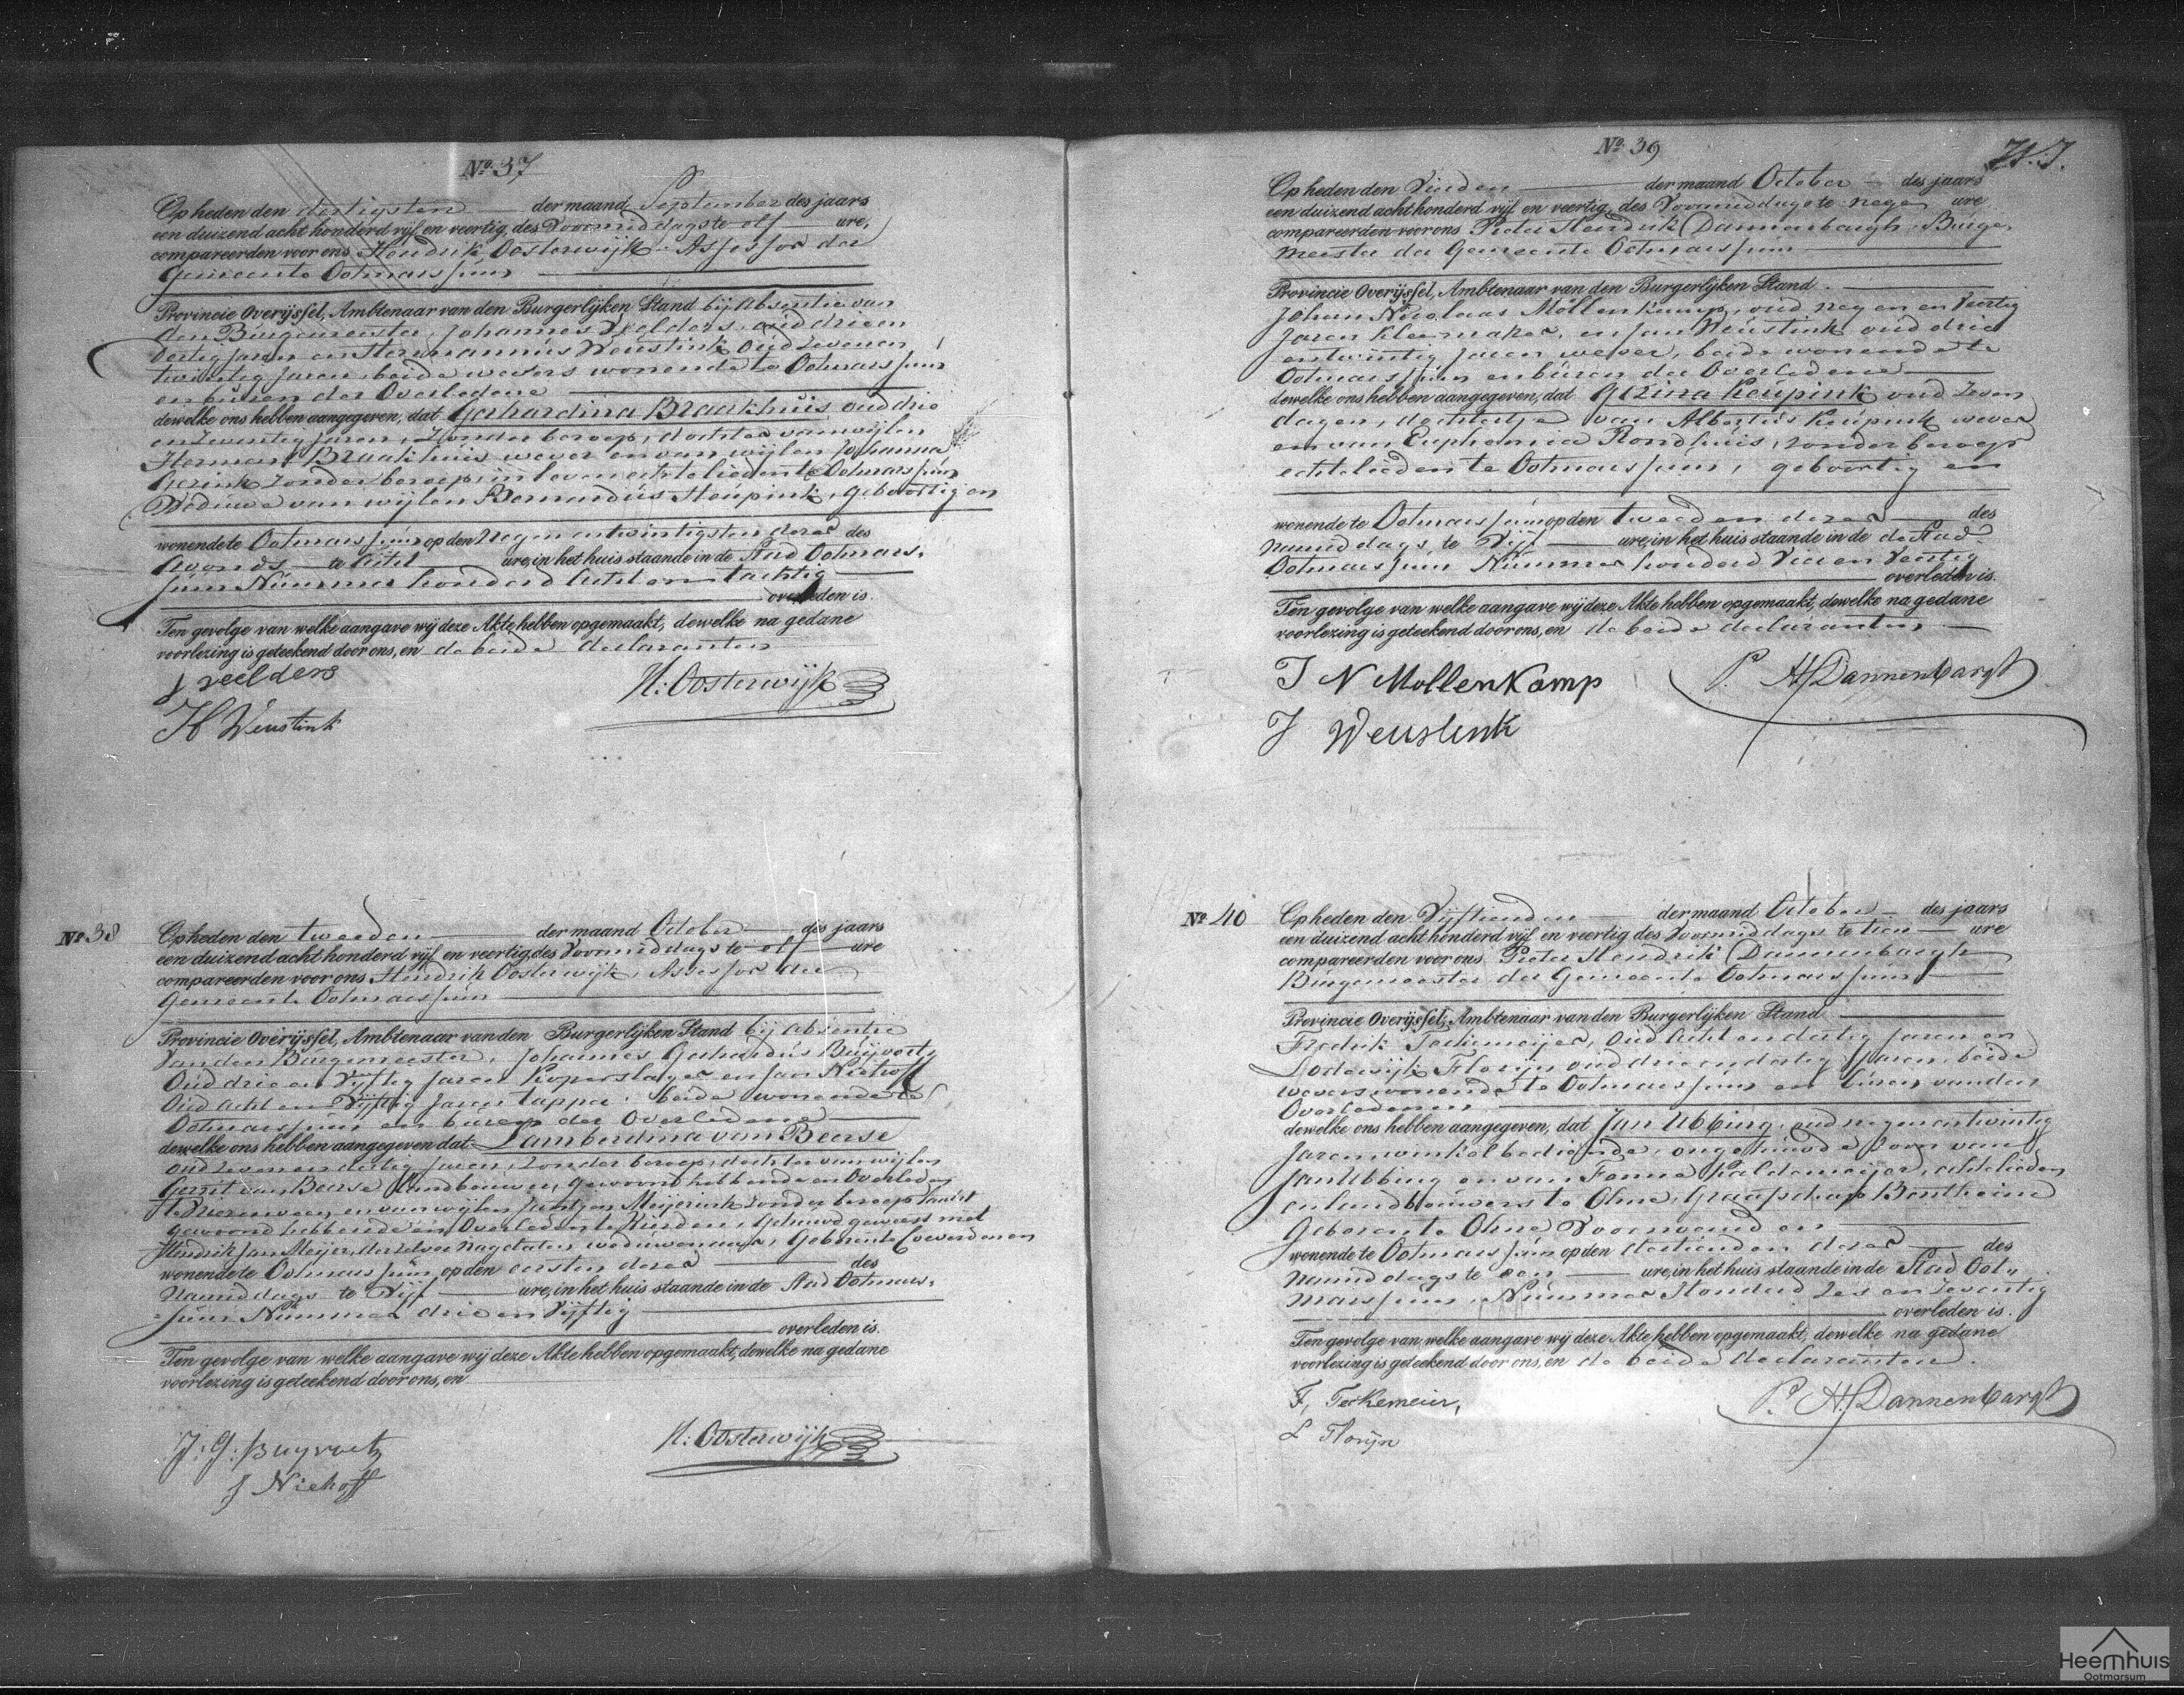 Nº 37
Op heden den dertigsten der maand September des jaars
een duizend acht honderd vijf en veertig, des Voormiddags te elf ure,
compareerden voor ons Hendrik Oosterwijk Assessor der
Gemeente Ootmarssum
Provincie Overijssel, Ambtenaar van den Burgerlijken Stand bij absentie van
den Burgemeester, Johannes Veelders, oud drie en
veertig jaren en Hermannus Weustink oud zeven en
twintig jaren, beide wevers wonende te Ootmarssum
en buren der Overledene
dewelke ons hebben aangegeven, dat Gerhardina Braakhuis, oud drie
en zeventig jaren, zonder beroep, dochter van wijlen
Herman Braakhuis wever en van wijlen Johanna
Gezink zonder beroep, in leven echtelieden te Ootmarssum
Weduwe van wijlen Bernardus Heupink, geboortig en
wonende te Ootmarssum op den Negen en twintigsten dezer des
Avonds te Acht ure, in het huis staande in de Stad Ootmars,
sum Nummer honderd Acht en tachtig
overleden is.
Ten gevolge van welke aangave wij deze Akte hebben opgemaakt, dewelke na gedane
voorlezing is geteekend door ons, en de beide declaranten
J veelders
H: Oosterwijk
H Weustink
Nº 38
Op heden den tweeden der maand October des jaars
een duizend acht honderd vijf en veertig, des Voormiddags te elf ure
compareerden voor ons Hendrik Oosterwijk, Assessor der
Gemeente Ootmarssum
Provincie Overijssel, Ambtenaar van den Burgerlijken Stand bij absentie
van den Burgemeester, Johannes Gerhardus Buijvoets
Oud drie en Vijftig jaren Koperslager en Jan Niehoff
Oud acht en Vijftig jaren tapper beide wonende te
Ootmarssum en buren der Overledene
dewelke ons hebben aangegeven dat Lamberdina van Beerse
oud zeven en dertig jaren, zonder beroep, dochter van wijlen
Gerrit van Beerse Landbouwer, gewoond hebbende en Overleden
te en van wijlen Meijerink zonder beroep laatst
gewoond hebbende en Overleden te Rheden, gehuwd geweest met
Hendrik Jan Meijer, derzelver nagelaten weduwenaar, Geboren te Coeverden en
wonende te Ootmarssum op den eersten dezer des
Namiddags te Vijf ure, in het huis staande in de Stad Ootmars,
sum Nummer drie en Vijftig
overleden is.
Ten gevolge van welke aangave wij deze Akte hebben opgemaakt, dewelke na gedane
voorlezing is geteekend door ons, en
J: G: Buyvoets
H: Oosterwijk
J Niehoff
Nº 39
Op heden den Vierden der maand October des jaars
een duizend acht honderd vijf en veertig, des Voormiddags te negen ure
compareerden voor ons Pieter Hendrik Dannenbargh, Burge,
meester der Gemeente Ootmarssum
Provincie Overijssel, Ambtenaar van den Burgerlijken Stand
Johan Nicolaas Möllenkamp, oud negen en Veertig
jaren kleermaker, en Jan Weustink oud drie
en twintig jaren wever, beide wonende te
Ootmarssum en buren der Overledene
dewelke ons hebben aangegeven, dat Gezina Keupink oud zeven
dagen, dochtertje van Albertus Keupink wever
en van Euphemia Rondhuis, zonder beroep
echtelieden te Ootmarssum, geboortig en
wonende te Ootmarssum op den tweeden dezer des
Namiddags te Vijf ure, in het huis staande in de de Stad
Ootmarssum Nummer honderd Vier en Veertig
overleden is.
Ten gevolge van welke aangave wij deze Akte hebben opgemaakt, dewelke na gedane
voorlezing is geteekend door ons, en de beide declaranten,
J N Mollenkamp
P. H Dannenbargh
J Weustink
Nº 40
Op heden den Vijftienden der maand October des jaars
een duizend acht honderd vijf en veertig des Voormiddags te tien ure
compareerden voor ons Pieter Hendrik Dannenbargh
Burgemeester der Gemeente Ootmarssum
Provincie Overijssel, Ambtenaar van den Burgerlijken Stand
Fredrik Teckemeijer, Oud Acht en dertig jaren en
Lodewijk Florijn oud drie en dertig jaren, beide
wevers wonende te Ootmarssum en buren van den
Overledenen
dewelke ons hebben aangegeven, dat Jan Ubbing, oud negen en twintig
jaren, winkelbediende, ongehuwde zoon van
Jan Ubbing en van Fenne Kaldemeijer, echtelieden
en landbouwers te Ohne, Graafschap Bentheim
Geboren te Ohne Voornoemd en
wonende te Ootmarssum op den dertienden dezer des
Namiddags te een ure, in het huis staande in de Stad Oot,,
marssum, Nummer Honderd zes en zeventig
overleden is.
Ten gevolge van welke aangave wij deze Akte hebben opgemaakt, dewelke na gedane
voorlezing is geteekend door ons, en de beide declaranten.
F, Teckemeier,
P. H. Dannenbargh
L Florijn
Heemhuis
Ootmarsum